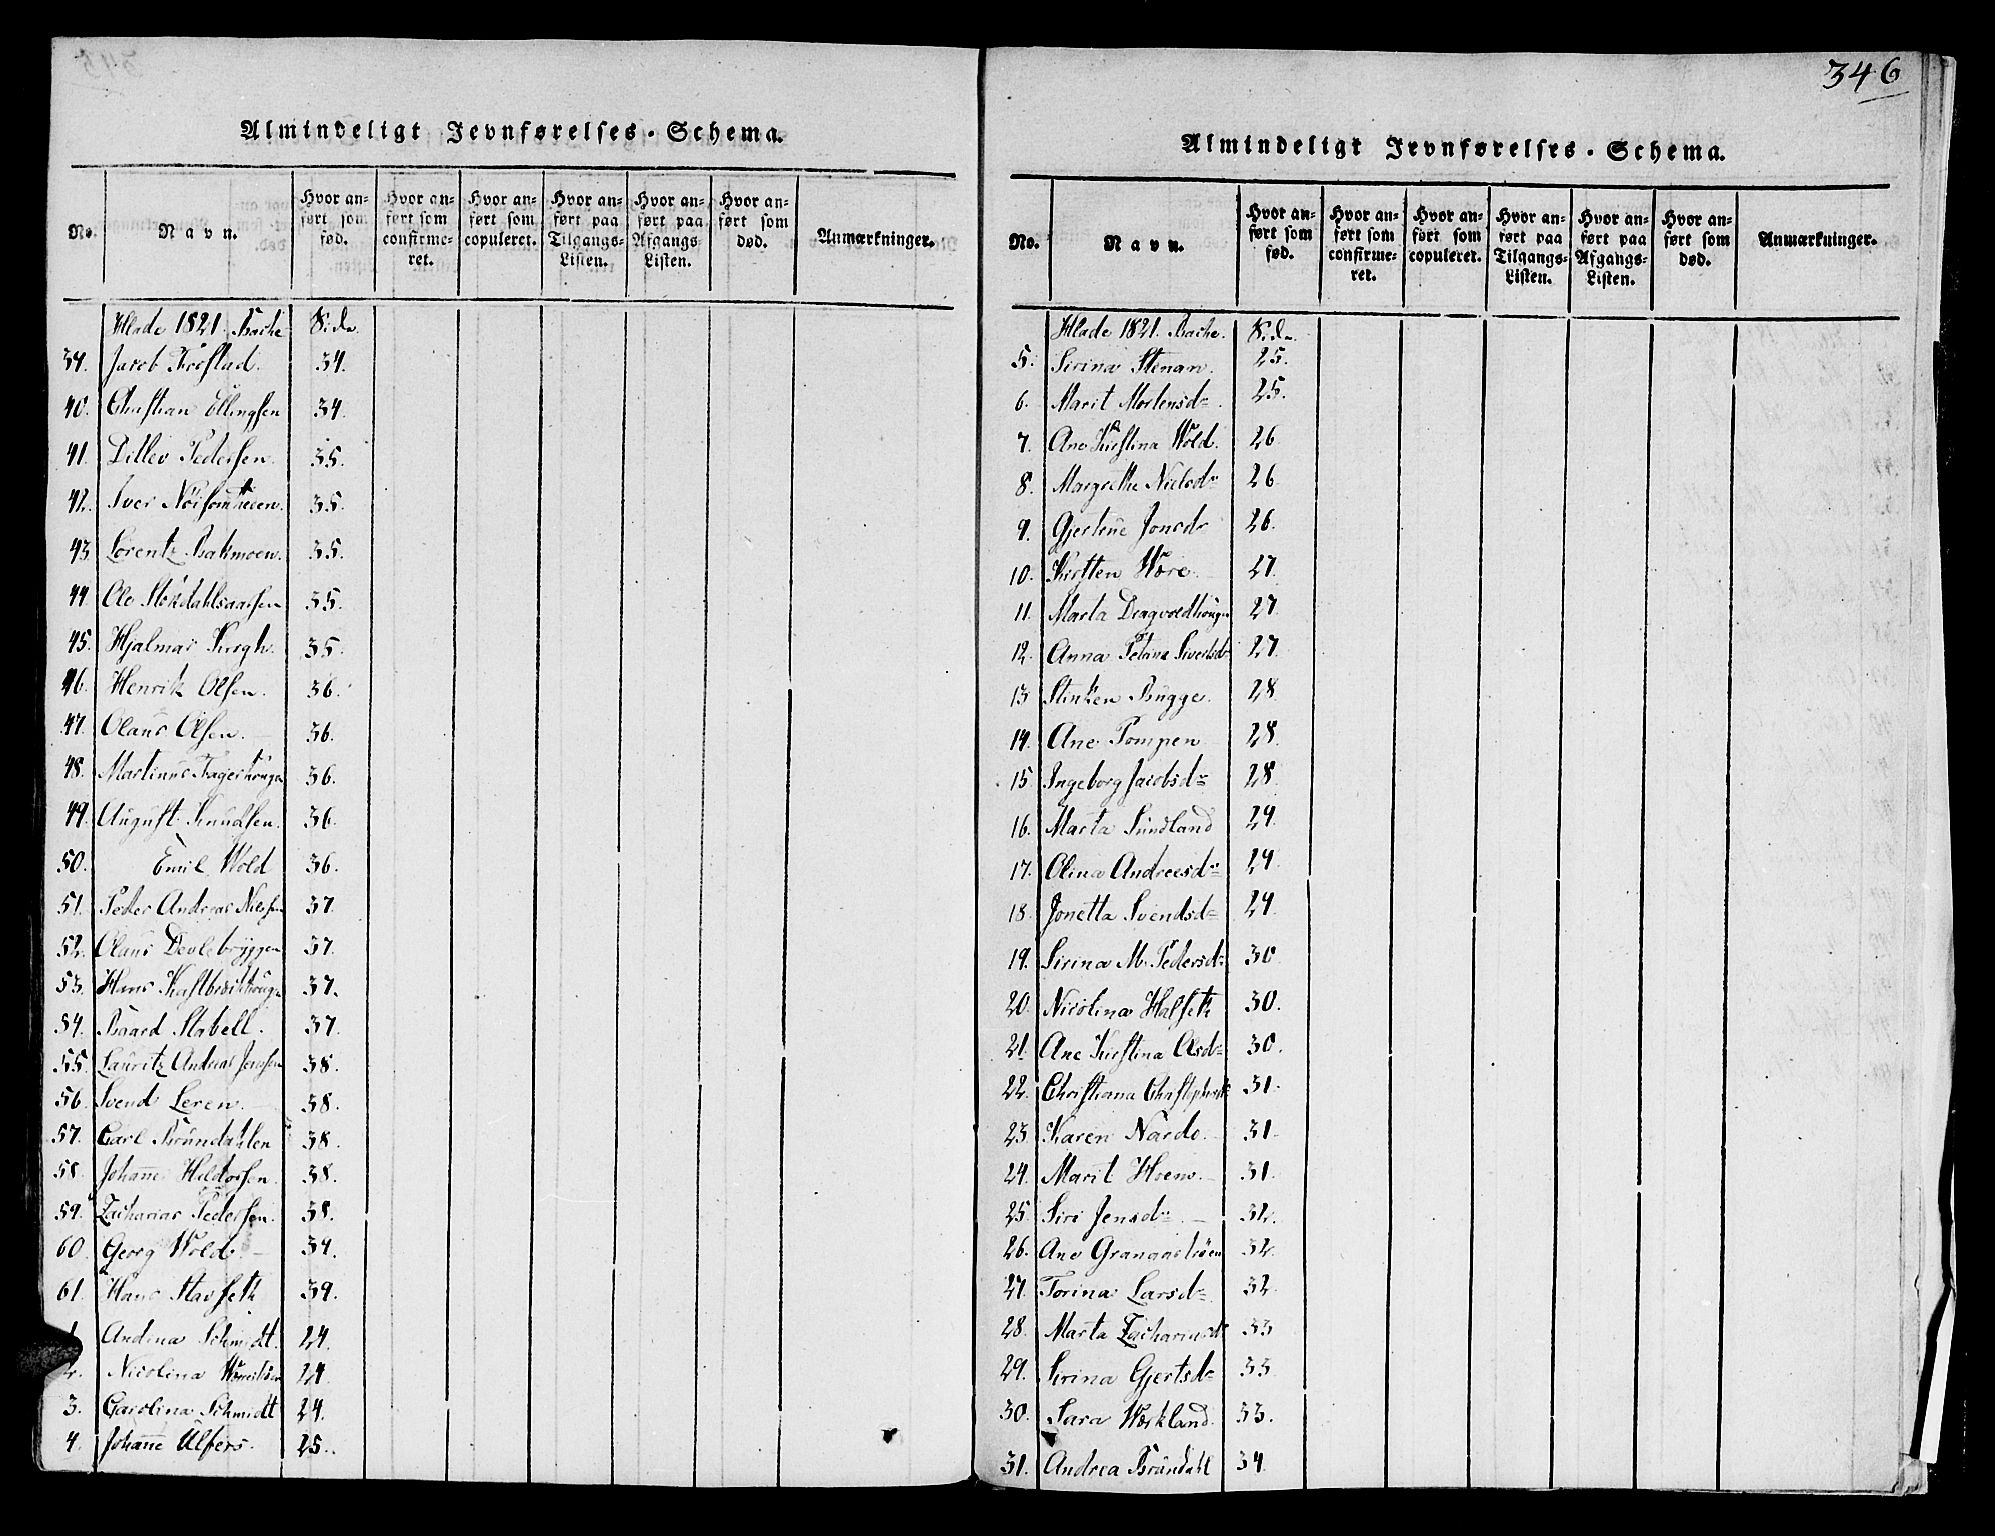 346
Almindeligt Jevnførelses-Schema.
No. Navn. Hvor anført som fød. Hvor anført som confirmeret. Hvor anført som copuleret. Hvor anført paa Tilgangs-Listen. Hvor anført paa Afgangs-Listen. Hvor anført som død. Anmærkninger.
Hlade 1821. Bache Side
39. Jacob 34.
40. Christian Ellingsen 34.
41. Ditlev Pedersen. 35.
42. Iver 35.
43. Lorentz Bakmoen. 35.
44. Ole 35.
45. Hjalmar Krogh. 35.
46. Henrik Olsen. 36.
47. Olaus Olsen. 36.
48. Martinus Fagerhoug 36.
49. August Knudsen. 36.
50. Emil Wold 36.
51. Peder Andreas Nielsen 37.
52. Olaus Devlebryggen 37.
53. Hans 37.
54. Baard Stabell. 37.
55. Lauritz Andreas Jensen 38.
56. Svend Leren. 38.
57. Carl Brundahlen 38.
58. Johan Hildorsen. 38.
59. Zacharias Pedersen. 38.
60. Georg Wold. 39.
61. Hans Stavseth 39.
1. Andrea Schmidt. 24.
2. Nicolina 24.
3. Carolina Schmidt 24.
4. Johanne Ulfers. 25.
Almindeligt Jevnførelses-Schema.
No. Navn. Hvor anført som fød. Hvor anført som confirmeret. Hvor anført som copuleret. Hvor anført paa Tilgangs-Listen. Hvor anført paa Afgangs-Listen. Hvor anført som død. Anmærkninger.
Hlade 1821. Bache. Side
5. Sirina Stenan. 25.
6. Marit Mortensdr 25.
7. Ane Kirstina Wold. 26
8. Margrethe Nielsdr 26.
9. Gjertine Jonsdr 26.
10. Kirsten Være. 27.
11. Marta Dragvoldhougen 27.
12. Anna Petrine Sivertsdr 27.
13 Stinken Bugge. 28
14. Ane Tompen 28.
15 Ingeborg Jacobsdr 28.
16. Marta Sundland 29.
17. Olina Andreesdr 29.
18. Jonetta Svendsdr 29.
19. Sirina M. Pedersdr 30
20. Nicolina Halseth 30.
21. Ane Kirstina Olsdr 30.
22. Christiana Christophersdr 31.
23. Karen Nardo. 31.
24. Marit Hoem. 31.
25. Siri Jensdr 32.
26. Ane 32.
27. Torina Larsdr 32.
28. Marta Zachariasdr 33
29. Sirina Gjertsdr 33.
30. Sara Workland. 33.
31. Andrea Brundahl 34.